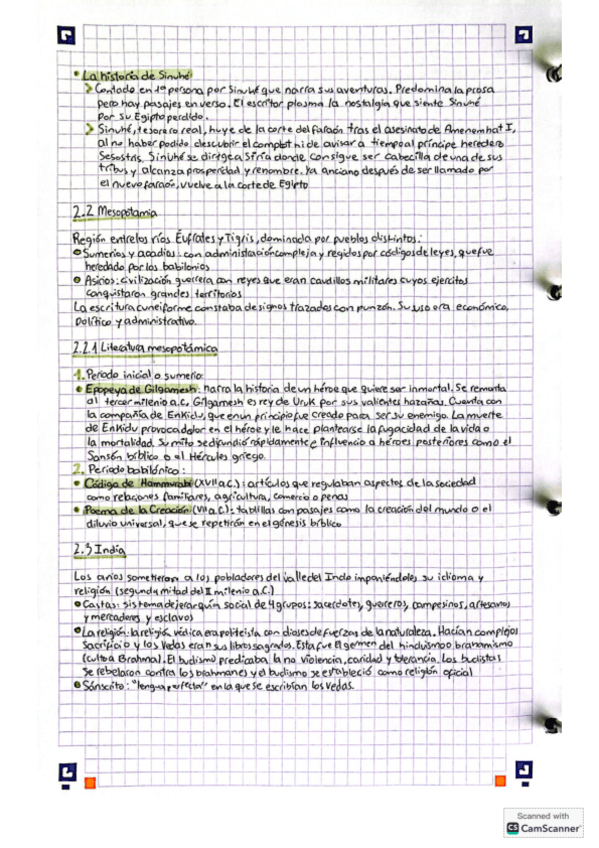 • La historia de Sinuhé
> Contado en 1ª persona por Sinuhé que narra sus aventuras. Predomina la prosa
pero hay pasajes en verso. El escritor plasma la nostalgia que siente Sinuhé
por su Egipto perdido.
> Sinuhé, tesorero real, huye de la corte del faraón tras el asesinato de Amenemhat I,
al no haber podido descubrir el complot ni de avisar a tiempo al príncipe heredero
Sesostris. Sinuhé se dirige a Siria donde consigue ser cabecilla de una de sus
tribus y alcanza prosperidad y renombre. Ya anciano después de ser llamado por
el nuevo faraón, vuelve a la corte de Egipto
2.2 Mesopotamia
Región entre los ríos Éufrates y Tigris, dominada por pueblos distintos:
• Sumerios y acadios: con administación compleja y regidos por códigos de leyes, que fue
heredado por los babilonios
• Asirios: civilización guerrera con reyes que eran caudillos militares cuyos ejercitos
conquistaron grandes territorios
La escritura cuneiforme constaba de signos trazados con punzón. Su uso era económico,
político y administrativo.
2.2.1 Literatura mesopotámica
1. Periodo inicial o sumerio:
• Epopeya de Gilgamesh: narra la historia de un héroe que quiere ser inmortal. Se remonta
al tercer milenio a.C. Gilgamesh es rey de Uruk por sus valientes hazañas. Cuenta con
la compañía de Enkidu, que en un principio fue creado para ser su enemigo. La muerte
de Enkidu provoca dolor en el héroe y le hace plantearse la fugacidad de la vida o
la mortalidad. Su mito se difundió rápidamente e influencio a héroes posteriores como el
Sansón bíblico o el Hércules griego.
2. Periodo babilónico:
• Código de Hammurabi (XVII a.C.): artículos que regulaban aspectos de la sociedad
como relaciones familiares, agricultura, comercio o penas
• Poema de la Creación (VII a.C.): tablillas con pasajes como la creación del mundo o el
diluvio universal, que se repetirán en el génesis bíblico
2.3 India
Los arios sometieron a los pobladores del valle del Indo imponiéndoles su idioma y
religión (segunda mitad del II milenio a.C.)
• Castas: sistema de jerarquía social de 4 grupos: sacerdotes, guerreros, campesinos, artesanos
y mercaderes y esclavos
• La religión: la religión védica era politeista con dioses de fuerzas de la naturaleza. Hacían complejos
sacrificio y los Vedas eran sus libros sagrados. Esta fue el germen del hinduismo o brahamismo
(culto a Brahma). El budismo predicaba la no violencia, caridad y tolerancia. Los budistas
se rebelaron contra los brahmanes y el budismo se estableció como religión oficial
• Sánscrito: "lengua perfecta" en la que se escribían los vedas.
Scanned with
CS CamScanner